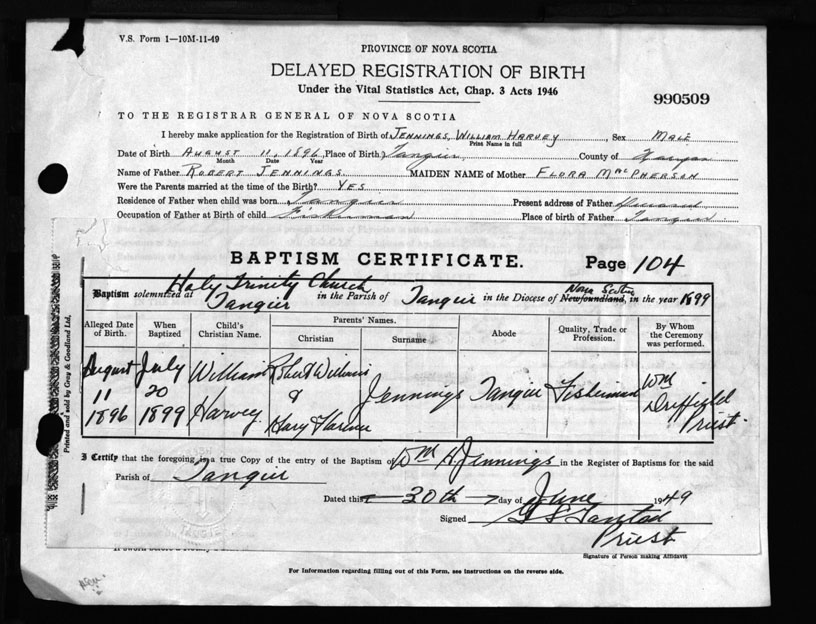 V.S. Form 1—10M-11-49
PROVINCE OF NOVA SCOTIA
DELAYED REGISTRATION OF BIRTH
Under the Vital Statistics Act, Chap. 3 Acts 1946
990509
TO THE REGISTRAR GENERAL OF NOVA SCOTIA
I hereby make application for the Registration of Birth of JENNINGS, WILLIAM HARVEY, Sex MALE
Print Name in full
Date of Birth AUGUST 11, 1896, Place of Birth Tangier County of
Month Date Year
Name of Father ROBERT JENNINGS MAIDEN NAME of Mother FLORA MACPHERSON
Were the Parents married at the time of the Birth? YES
Residence of Father when child was born Tangier Present address of Father Deceased
Occupation of Father at Birth of child Fisherman Place of birth of Father Tangier
BAPTISM CERTIFICATE. Page 104
Baptism solemnized at Holy Trinity Church Tangier in the Parish of Tangier in the Diocese of Nova Scotia Newfoundland, in the year 1899
Alleged Date of Birth. When Baptized Child's Christian Name. Parents' Names. Christian Surname Abode Quality, Trade or Profession. By Whom the Ceremony was performed.
August 11 1896 July 20 1899 William Harvey Robert William & Jennings Tangier Fisherman Wm Driffield Priest
I Certify that the foregoing is a true Copy of the entry of the Baptism of Wm H Jennings in the Register of Baptisms for the said
Parish of Tangier
Dated this 20th day of June 1949
Signed
Priest
Signature of Person making Affidavit
For Information regarding filling out of this Form, see instructions on the reverse side.
Printed and sold by Gray & Goodland Ltd.